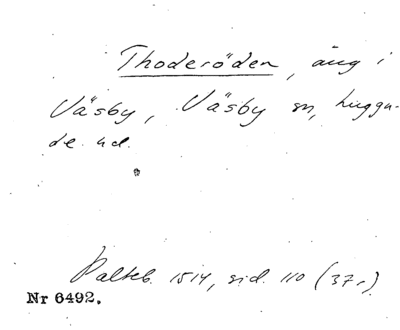 Thoderöden, äng i
Väsby, Väsby sn, Luggu-
de hd.
Palteb. 1514, sid. 110 (37r).
Nr 6492.